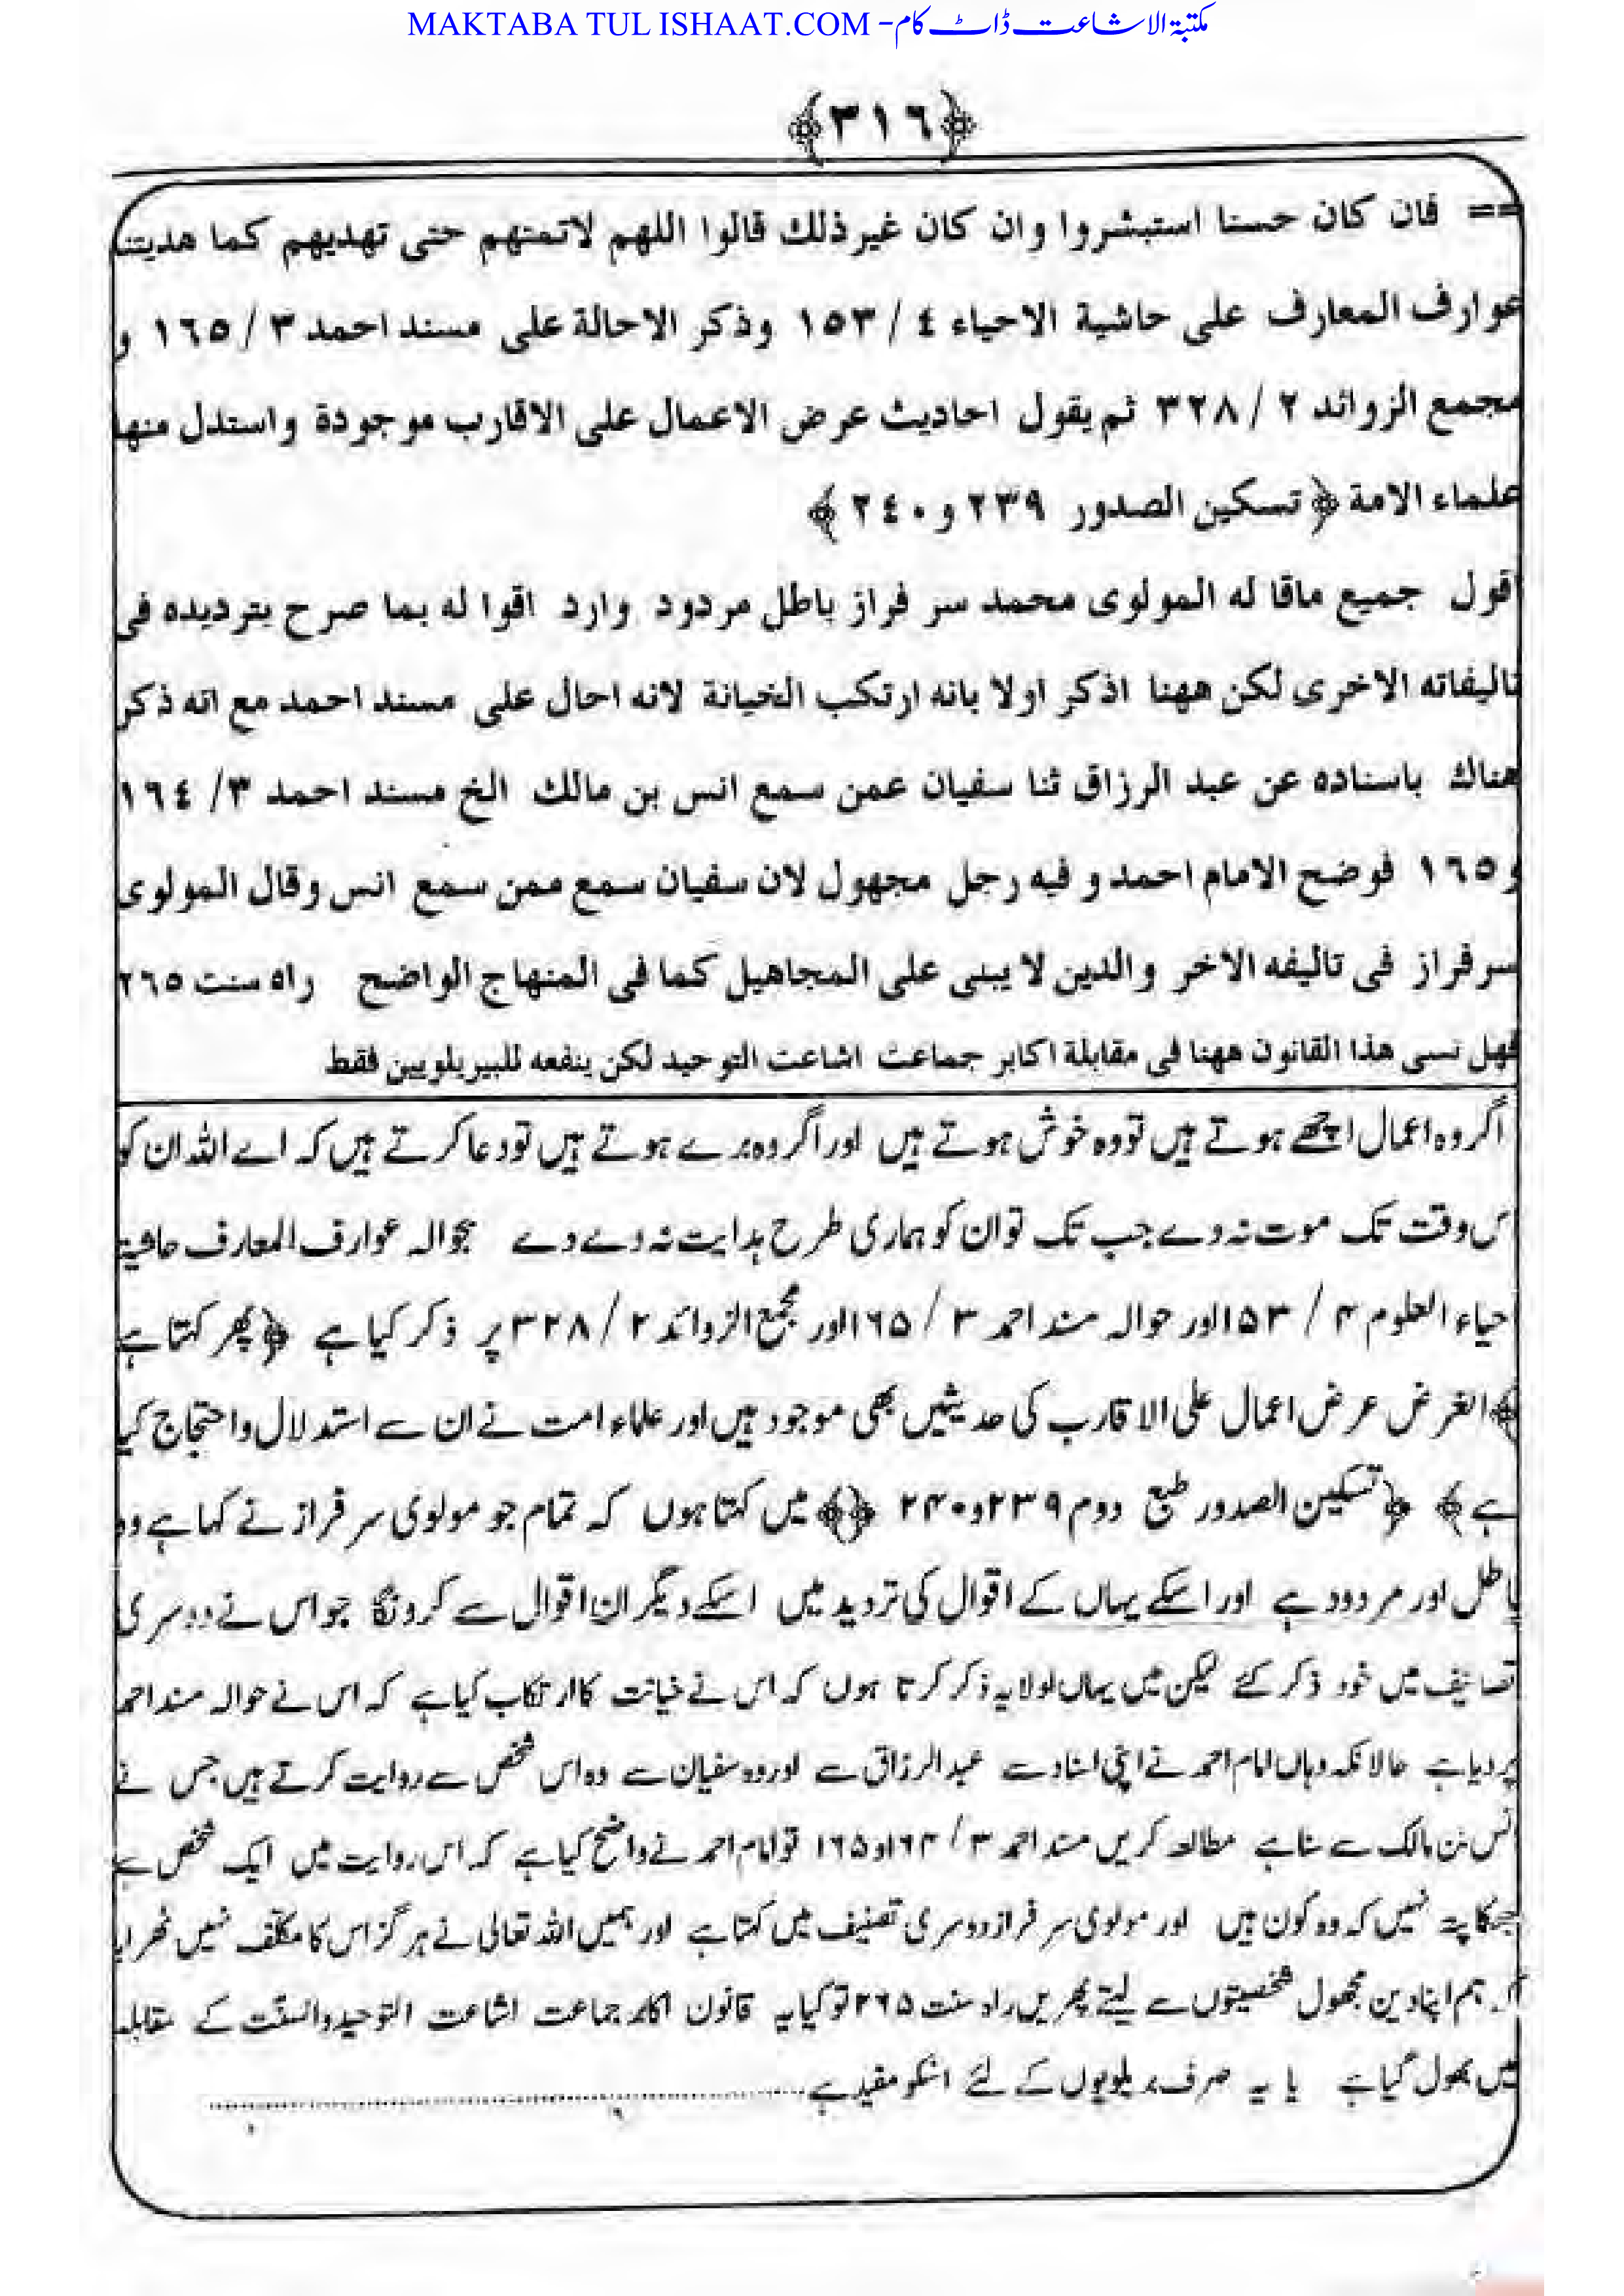 MAKTABA TUL ISHAAT.COM - مکتبۃ الاشاعت ڈاٹ کام
﴿٣١٦﴾
== فان كان حسنا استبشروا وان كان غير ذلك قالوا اللهم لاتمتهم حتى تهديهم كما هديتنا
عوارف المعارف على حاشية الاحياء ٤ / ١٥٣ وذكر الاحالة على مسند احمد ٣ / ١٦٥ و
مجمع الزوائد ٢ / ٣٢٨ ثم يقول احاديث عرض الاعمال على الاقارب موجودة واستدل منها
علماء الامة ﴿ تسكين الصدور ٢٣٩ و ٢٤٠ ﴾
اقول جميع ماقا له المولوى محمد سر فراز باطل مردود وارد اقوا له بما صرح بترديده فى
تاليفاته الاخرى لكن ههنا اذكر اولا بانه ارتكب الخيانة لانه احال على مسند احمد مع انه ذكر
هناك باسناده عن عبد الرزاق ثنا سفيان عمن سمع انس بن مالك الخ مسند احمد ٣/ ١٦٤
و١٦٥ فوضح الامام احمد و فيه رجل مجهول لان سفيان سمع ممن سمع انس وقال المولوى
سرفراز فى تاليفه الاخر والدين لا يبنى على المجاهيل كما فى المنهاج الواضح راه سنت ٢٦٥
فهل نسى هذا القانون ههنا فى مقابلة اكابر جماعت اشاعت التوحيد لكن ينفعه للبيريلويين فقط
اگر وہ اعمال اچھے ہوتے ہیں تو وہ خوش ہوتے ہیں اور اگر وہ برے ہوتے ہیں تو دعا کرتے ہیں کہ اے اللہ ان کو
اس وقت تک موت نہ دے جب تک تو ان کو ہماری طرح ہدایت نہ دے دے بحوالہ عوارف المعارف حاشیۃ
احیاء العلوم ۴ / ۱۵۳ اور حوالہ مسند احمد ۳ / ۱۶۵ اور مجمع الزوائد ۲ / ۳۲۸ پر ذکر کیا ہے ﴿ پھر کہتا ہے
﴾ الغرض عرض اعمال علی الاقارب کی حدیثیں بھی موجود ہیں اور علماء امت نے ان سے استدلال واحتجاج کیا
ہے ﴾ ﴿ تسکین الصدور طبع دوم ۲۳۹ و ۲۴۰ ﴾ میں کہتا ہوں کہ تمام جو مولوی سر فراز نے کہا ہے وہ
باطل اور مردود ہے اور اسکے یہاں کے اقوال کی تردید میں اسکے دیگر ان اقوال سے کرونگا جو اس نے دوسری
تصانیف میں خود ذکر کئے لیکن میں یہاں اولا یہ ذکر کرتا ہوں کہ اس نے خیانت کا ارتکاب کیا ہے کہ اس نے حوالہ مسند احمد
پر دیا ہے حالانکہ وہاں امام احمد نے اپنی اسناد سے عبد الرزاق سے اور وہ سفیان سے وہ اس شخص سے روایت کرتے ہیں جس نے
انس بن مالک سے سنا ہے مطالعہ کریں مسند احمد ۳ / ۱۶۴ و ۱۶۵ تو امام احمد نے واضح کیا ہے کہ اس روایت میں ایک شخص ہے
جسکا پتہ نہیں کہ وہ کون ہیں اور مولوی سر فراز دوسری تصنیف میں کہتا ہے اور ہمیں اللہ تعالی نے ہر گز اس کا مکلف نہیں ٹھرایا
کہ ہم اپنا دین مجھول شخصیتوں سے لیتے پھریں راہ سنت ۲۶۵ تو کیا یہ قانون اکابر جماعت اشاعت التوحید والسنت کے مقابلہ
میں بھول گیا ہے یا یہ صرف بریلویوں کے لئے اسکو مفید ہے